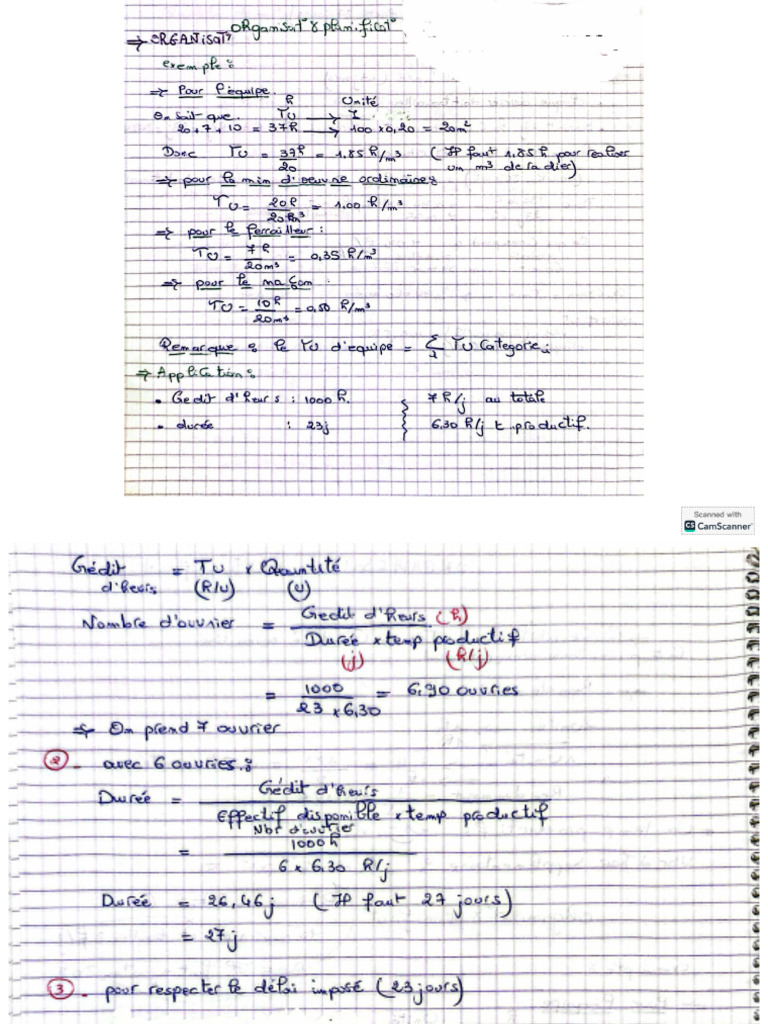 ORganisat° & planificat°
⇒ ORGANISAT°
exemple :
⇒ Pour l'équipe.
h Unité
On sait que. TU → 1
20+7+10 = 37h → 100 x 0,20 = 20m²
Donc TU = 37h / 20 = 1,85 h/m³ ( Il faut 1,85 h pour realiser
un m³ de radier)
⇒ pour la min d'oeuvre ordinaire :
TU = 20h / 20m³ = 1,00 h/m³
⇒ pour le ferrailleur :
TU = 7h / 20m³ = 0,35 h/m³
⇒ pour le maçon
TU = 10h / 20m³ = 0,50 h/m³
Remarque : le TU d'equipe = Σ TU Categorie i
⇒ Application :
• Crédit d'heurs : 1000 h. 7h/j au totale
• durée : 23j 6,30 h/j t. productif.
Scanned with
CS CamScanner
Crédit = TU x Quantité
d'heurs (h/u) (u)
Nombre d'ouvrier = Crédit d'heurs (h) / Durée x temp productif
(j) (h/j)
= 1000 / 23 x 6,30 = 6,90 ouvries
⇒ On prend 7 ouvrier
2 - avec 6 ouvries :
Durée = Crédit d'heurs / Effectif disponible x temp productif
Nbr d'ouvrier
= 1000h / 6 x 6,30 h/j
Durée = 26,46j ( Il faut 27 jours)
= 27j
3 - pour respecter le délai imposé (23 jours)